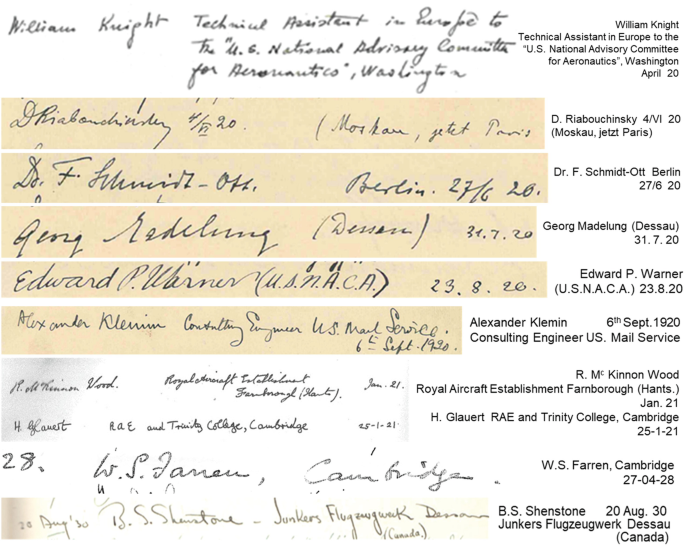 William Knight Technical Assistant in Europe to
the "U.S. National Advisory Committee
for Aeronautics", Washington
William Knight
Technical Assistant in Europe to the
"U.S. National Advisory Committee
for Aeronautics", Washington
April 20
DRiabouchinsky 4/VI 20. (Moskau, jetzt Paris
D. Riabouchinsky 4/VI 20
(Moskau, jetzt Paris)
Dr. F. Schmidt-Ott. Berlin. 27/6 20.
Dr. F. Schmidt-Ott Berlin
27/6 20
Georg Madelung (Dessau) 31.7.20
Georg Madelung (Dessau)
31.7. 20
Edward P. Warner (U.S.N.A.C.A.) 23.8.20.
Edward P. Warner
(U.S.N.A.C.A.) 23.8.20
Alexander Klemin Consulting Engineer U.S. Mail Service.
6th Sept. 1920.
Alexander Klemin 6th Sept.1920
Consulting Engineer US. Mail Service
R. McKinnon Wood. Royal Aircraft Establishment Jan. 21.
Farnborough (Hants).
H. Glauert RAE and Trinity College, Cambridge 25-1-21
R. Mc Kinnon Wood
Royal Aircraft Establishment Farnborough (Hants.)
Jan. 21
H. Glauert RAE and Trinity College, Cambridge
25-1-21
28. W.S. Farren, Cambridge.
W.S. Farren, Cambridge
27-04-28
20 Aug '30 B.S. Shenstone – Junkers Flugzeugwerk Dessau
(Canada.)
B.S. Shenstone 20 Aug. 30
Junkers Flugzeugwerk Dessau
(Canada)